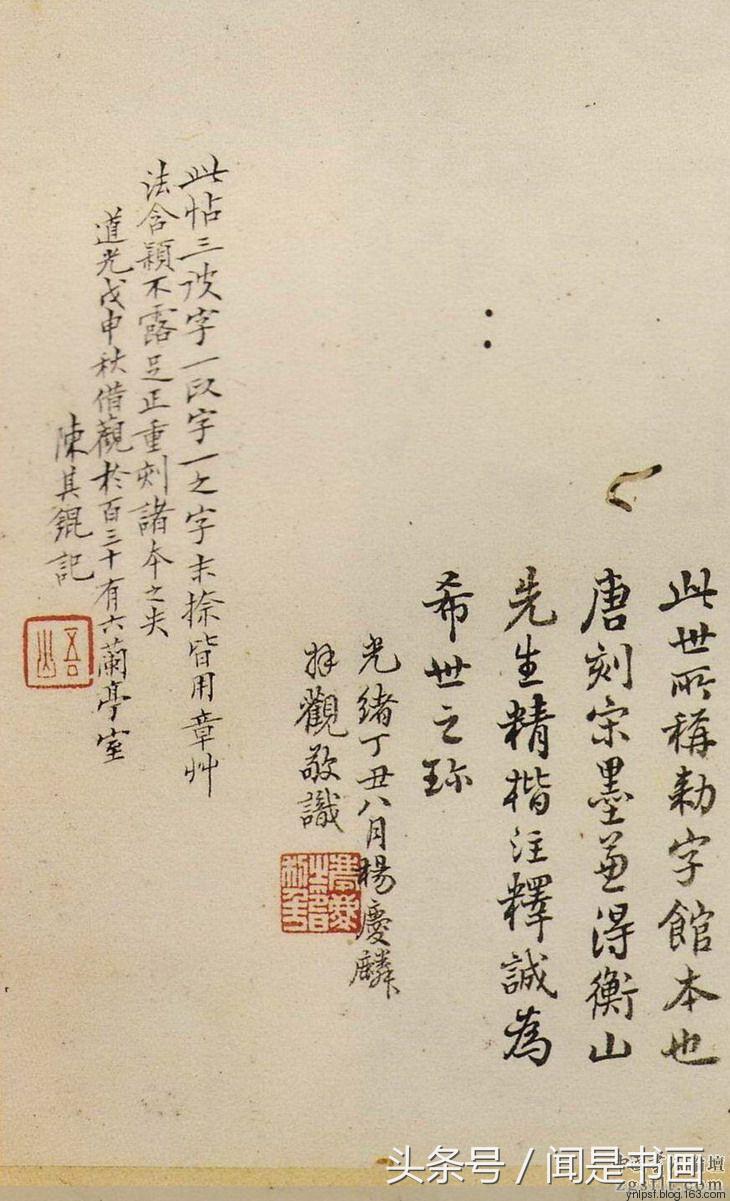 此世所稱勑字館本也
唐刻宋墨兼得衡山
先生精楷注釋誠為
希世之珎
光緒丁丑八月楊慶麟
拜觀敬識
此帖三波字一段字一之字末捺皆用章艸
法含穎不露足正重刻諸本之失
道光戊申秋借觀於百三十有六蘭亭室
陳其錕記
头条号 / 闻是书画
ynlpsf.blog.163.com